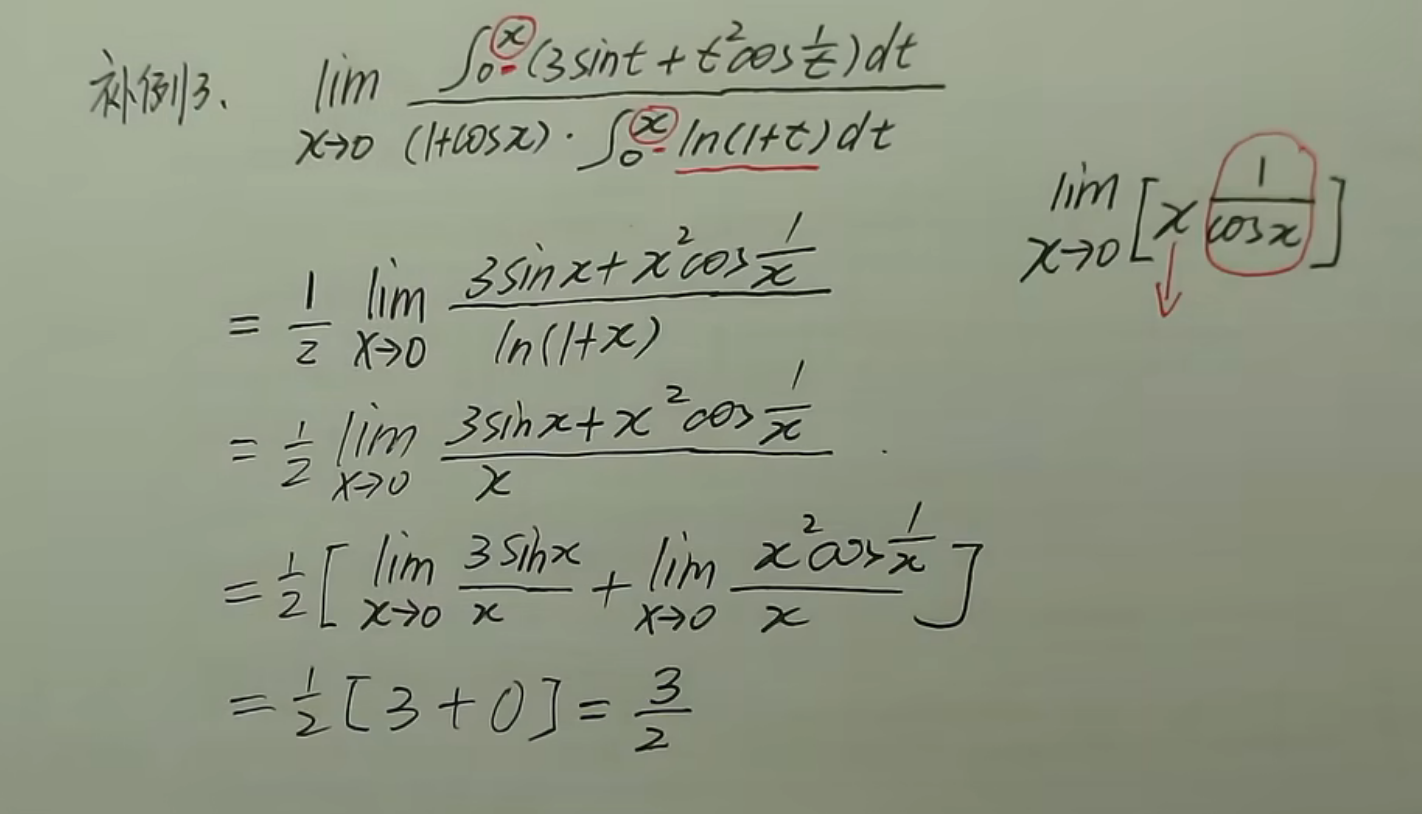 补例3、 lim_{x→0} \frac{∫_0^x (3sint + t^2 cos\frac{1}{t}) dt}{(1+cosx) · ∫_0^x ln(1+t) dt}
lim_{x→0} [x \frac{1}{cosx}]
= \frac{1}{2} lim_{x→0} \frac{3sinx + x^2 cos\frac{1}{x}}{ln(1+x)}
= \frac{1}{2} lim_{x→0} \frac{3sinx + x^2 cos\frac{1}{x}}{x}
= \frac{1}{2} [lim_{x→0} \frac{3sinx}{x} + lim_{x→0} \frac{x^2 cos\frac{1}{x}}{x}]
= \frac{1}{2} [3 + 0] = \frac{3}{2}